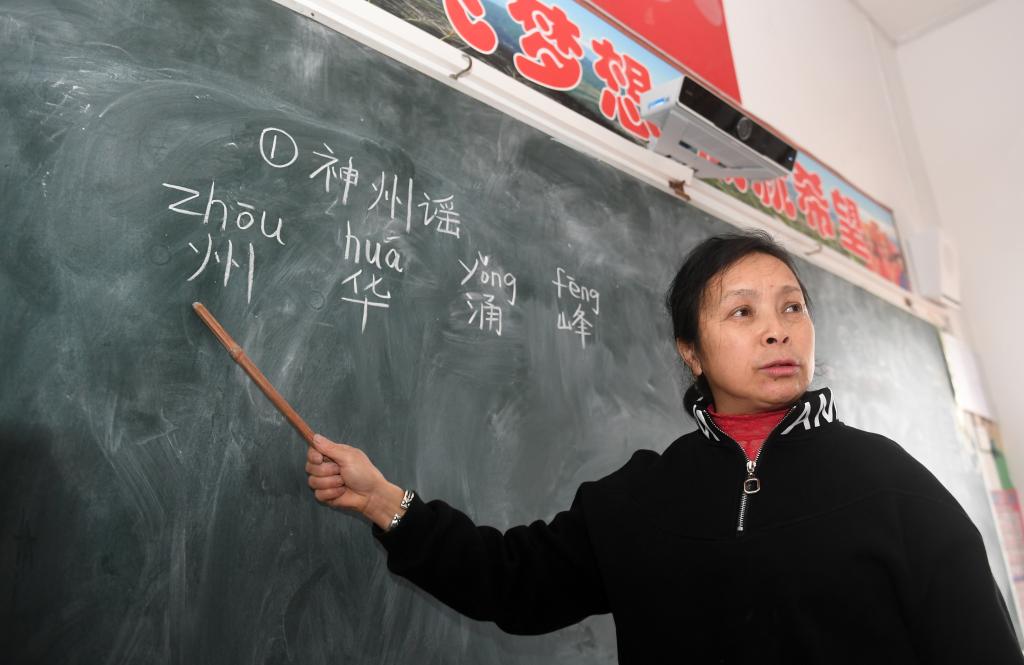 梦想
希望
① 神州谣
zhōu huā yǒng fēng
州 华 涌 峰
AM